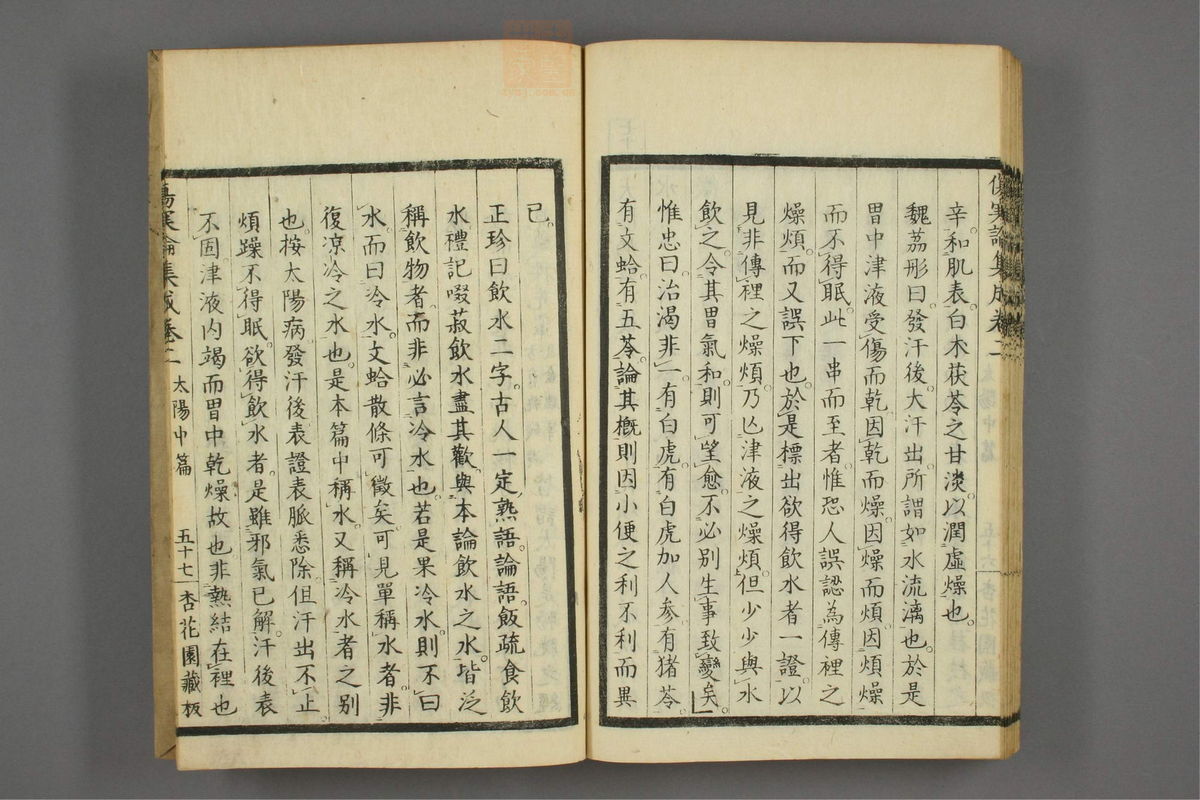 傷寒論集成卷二
辛。和肌表。白朮茯苓之甘淡。以潤虛燥也。
魏荔彤曰。發汗後。大汗出。所謂如水流漓也。於是
胃中津液受傷而乾。因乾而燥。因燥而煩。因煩燥
而不得眠。此一串而至者。惟恐人誤認為傳裡之
燥煩。而又誤下也。於是標出欲得飲水者一證。以
見非傳裡之燥煩。乃亾津液之燥煩。但少少與水
飲之。令其胃氣和。則可望愈。不必別生事致變矣。
惟忠曰。治渴非一。有白虎。有白虎加人參。有猪苓。
有文蛤。有五苓。論其概則因小便之利不利而異
已。
正珍曰。飲水二字。古人一定熟語。論語。飯疏食飲
水。禮記。啜菽飲水盡其歡。與本論飲水之水。皆泛
稱飲物者。而非必言冷水也。若是果冷水。則不曰
水而曰冷水。文蛤散條可徵矣。可見單稱水者。非
復凉冷之水也。是本篇中稱水。又稱冷水者之別
也。按太陽病。發汗後。表證表脈悉除。但汗出不止。
煩躁不得眠。欲得飲水者。是雖邪氣已解。汗後表
不固。津液内竭而胃中乾燥故也。非熱結在裡也
傷寒論集成卷二 太陽中篇 五十七 杏花園藏板